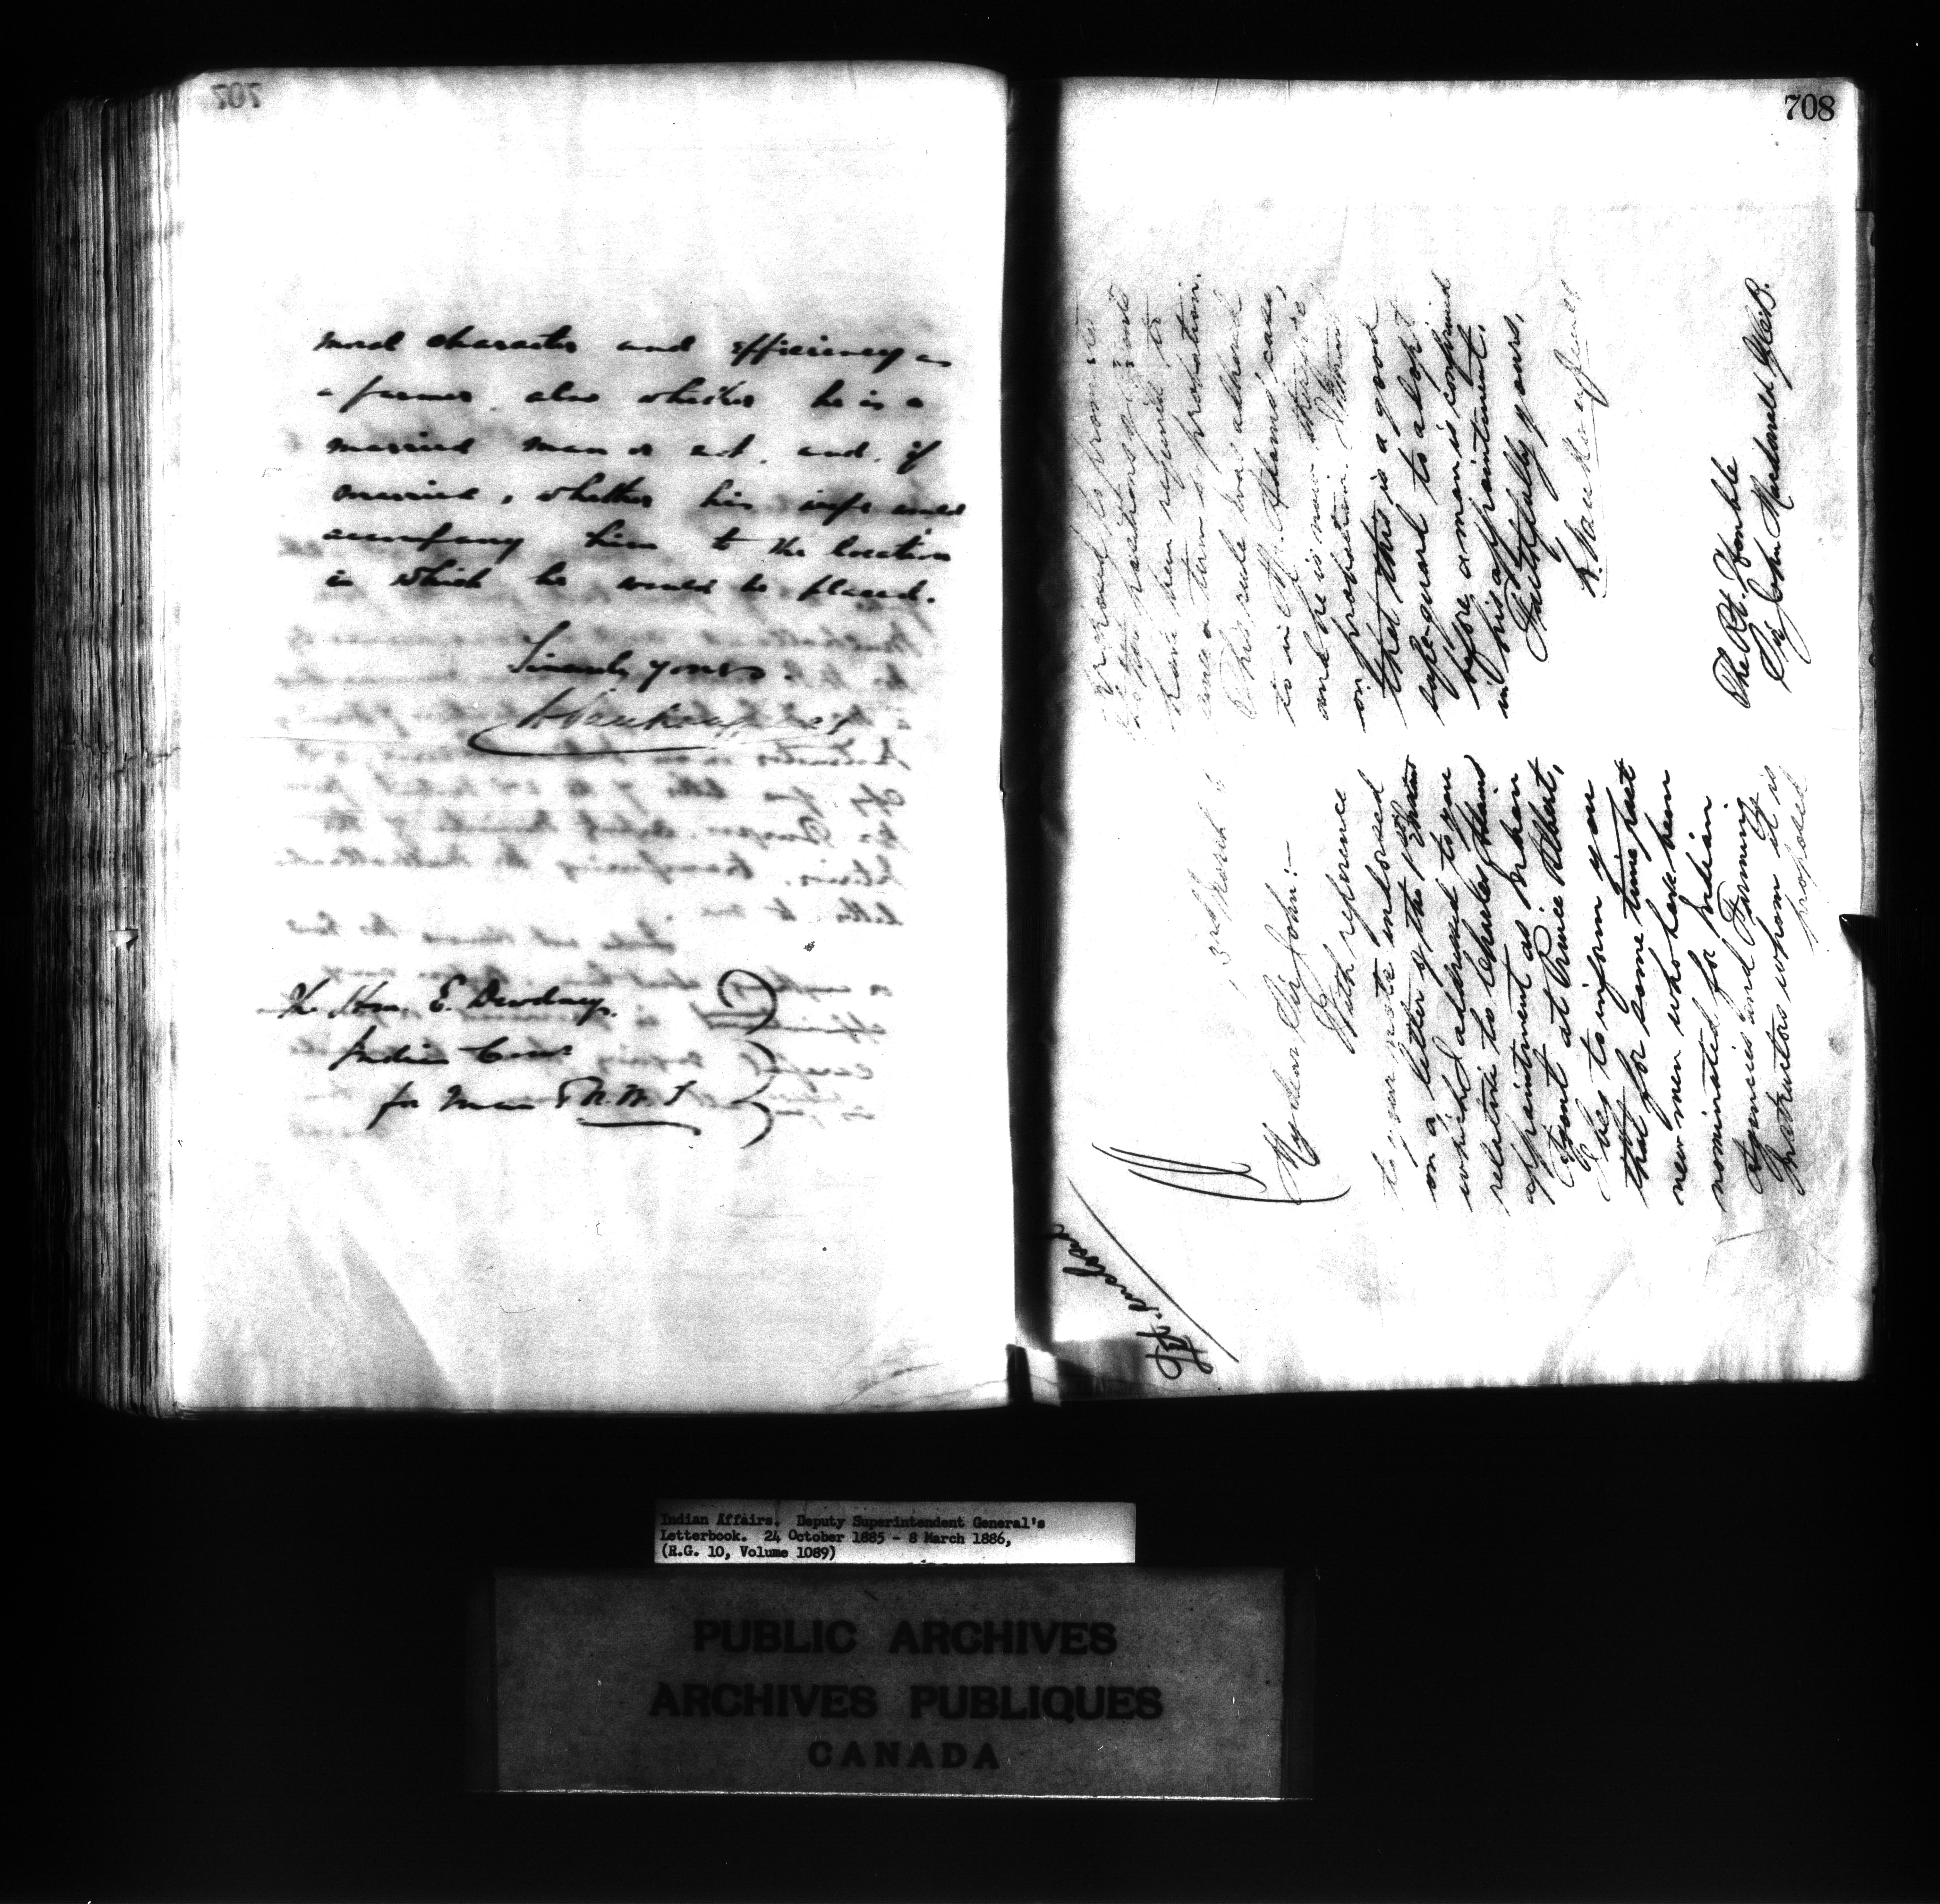 707
moral character and efficiency as
a farmer, also whether he is a
married man or not, and, if
married, whether his wife would
accompany him to the location
in which he would be placed.
Sincerely yours
L. Vankoughnet
The Hon. E. Dewdney,
Indian Comr
for Man & N.W.T
708
3rd March 6
My dear Sir John:—
With reference
to your note endorsed
on a letter of the 1st
which addressed to you
relative to Charles
appointment as Indian
Agent at Prince Albert,
I beg to inform you
that for some time past
new men who have been
nominated for Indian
Agencies and Farming
Instructors whom it is
proposed
proposed to promote
to the positions of Agents
have been required to
serve a term of probation.
This rule was adhered
to in Mr. Adams' case,
and he is now therefore
on probation. I think
that this is a good
safe-guard to adopt
before a man is confirmed
in his appointment.
Faithfully yours,
L. Vankoughnet
The Rt. Honble
Sir John Macdonald G.C.B.
Indian Affairs. Deputy Superintendent General's
Letterbook. 24 October 1885 - 8 March 1886,
(R.G. 10, Volume 1089)
PUBLIC ARCHIVES
ARCHIVES PUBLIQUES
CANADA